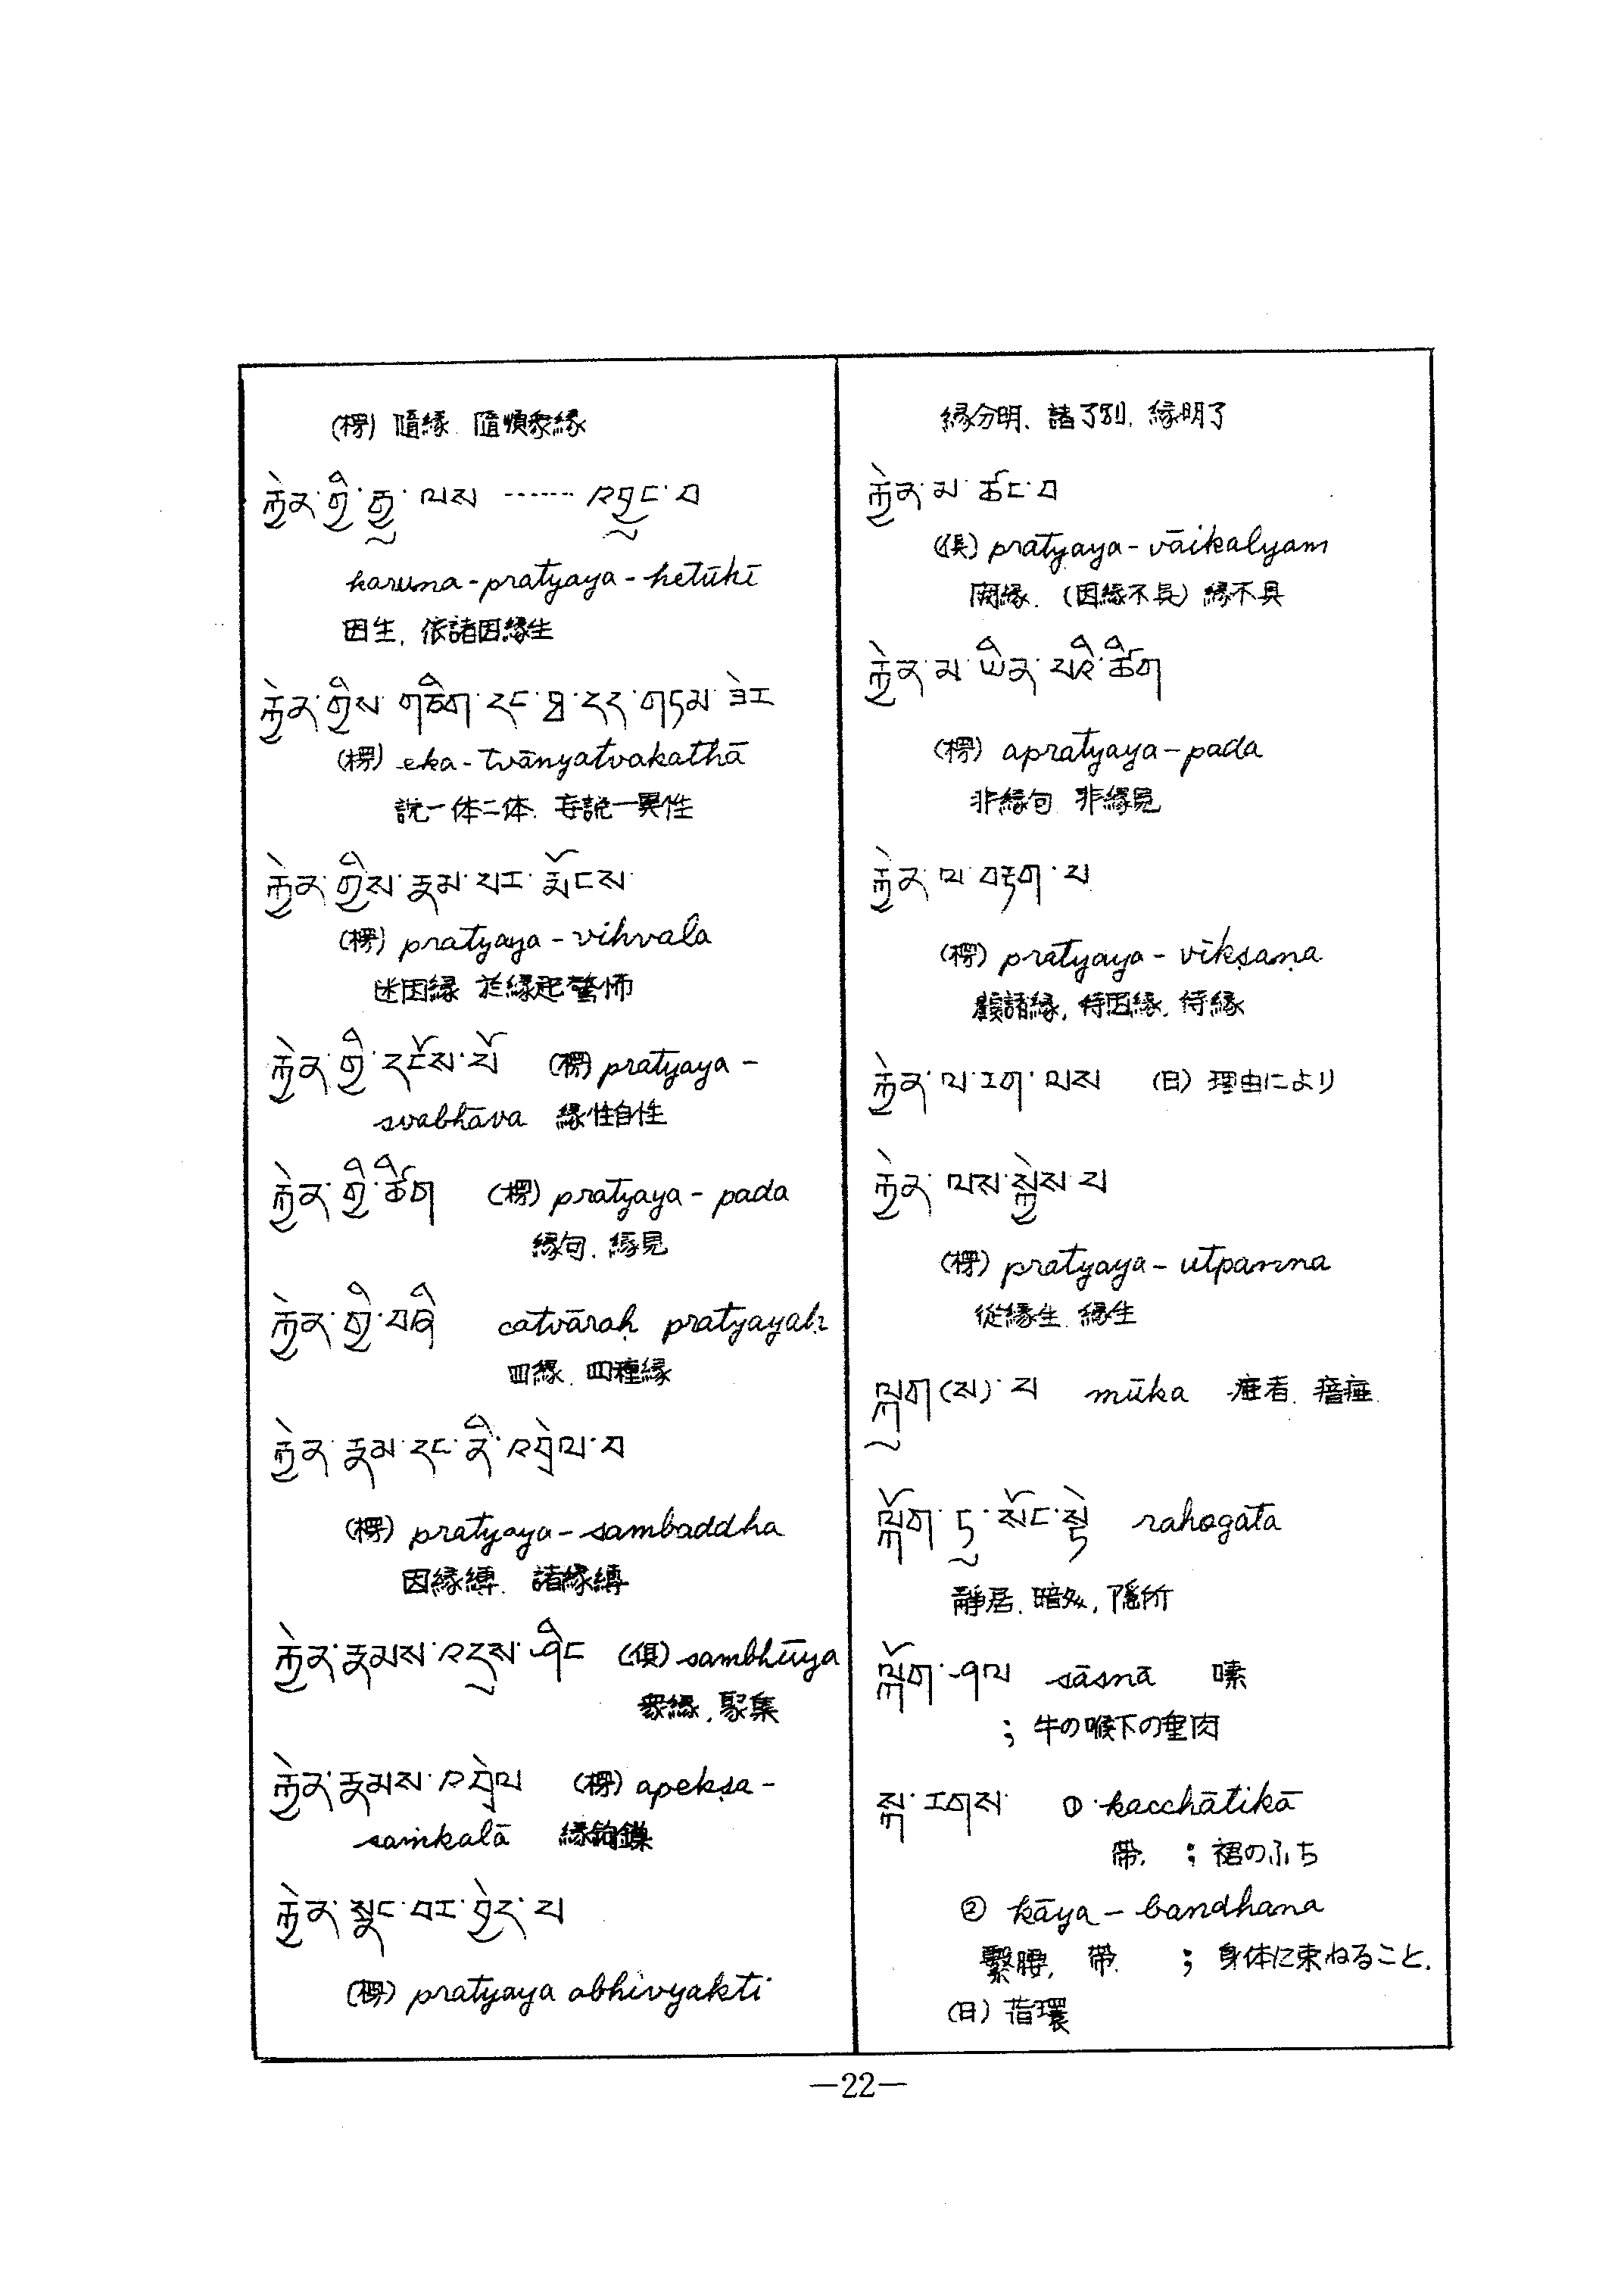 (楞) 隨緣. 隨順衆緣
རྐྱེན་གྱི་རྒྱུ་ལས ……… འབྱུང་བ
karuna-pratyaya-hetūkī
因生, 依諸因緣生
རྐྱེན་གྱིས་གཅིག་དང་ཐ་དད་གཏམ་ཟེར
(楞) eka-tvānyatvakathā
説一体二体. 妄説一異性
རྐྱེན་གྱིས་རྣམ་པར་རྨོངས
(楞) pratyaya-vihvala
迷因緣 於緣起驚怖
རྐྱེན་གྱི་དངོས་པོ (楞) pratyaya-
svabhāva 緣性自性
རྐྱེན་གྱི་ཚིག (楞) pratyaya-pada
緣句. 緣見
རྐྱེན་གྱི་བཞི catvāraḥ pratyayaḥ
四緣. 四種緣
རྐྱེན་རྣམ་དང་ནི་འབྲེལ་བ
(楞) pratyaya-sambaddha
因緣縛. 諸緣縛
རྐྱེན་རྣམས་འདུས་ཤིང (倶) sambhūya
衆緣, 聚集
རྐྱེན་རྣམས་འབྲེལ (楞) apekṣa-
saṁkalā 緣鉤鎖
རྐྱེན་སྣང་བར་བྱེད་པ
(楞) pratyaya abhivyakti
—22—
緣分明、諸了別, 緣明了
རྐྱེན་མ་ཚང་བ
(倶) pratyaya-vāikalyam
闕緣. (因緣不具) 緣不具
རྐྱེན་མ་ཡིན་པའི་ཚིག
(楞) apratyaya-pada
非緣句 非緣見
རྐྱེན་ལ་བརྟག་པ
(楞) pratyaya-vīkṣaṇa
觀諸緣, 待因緣, 待緣
རྐྱེན་ལ་རག་ལས (日) 理由により
རྐྱེན་ལས་སྐྱེས་པ
(楞) pratyaya-utpanna
從緣生. 緣生
ལྐུག(ས)་པ mūka 瘂者. 瘖瘂.
ལྐོག་ཏུ་སོང་སྟེ rahogata
靜居. 暗処, 隱所
ལྐོག་ཤལ sāsnā 嗉
; 牛の喉下の垂肉
སྐ་རགས ① kacchātikā
帶. ; 裙のふち
② kāya-bandhana
繫腰, 帶. ; 身体に束ねること.
(日) 指環